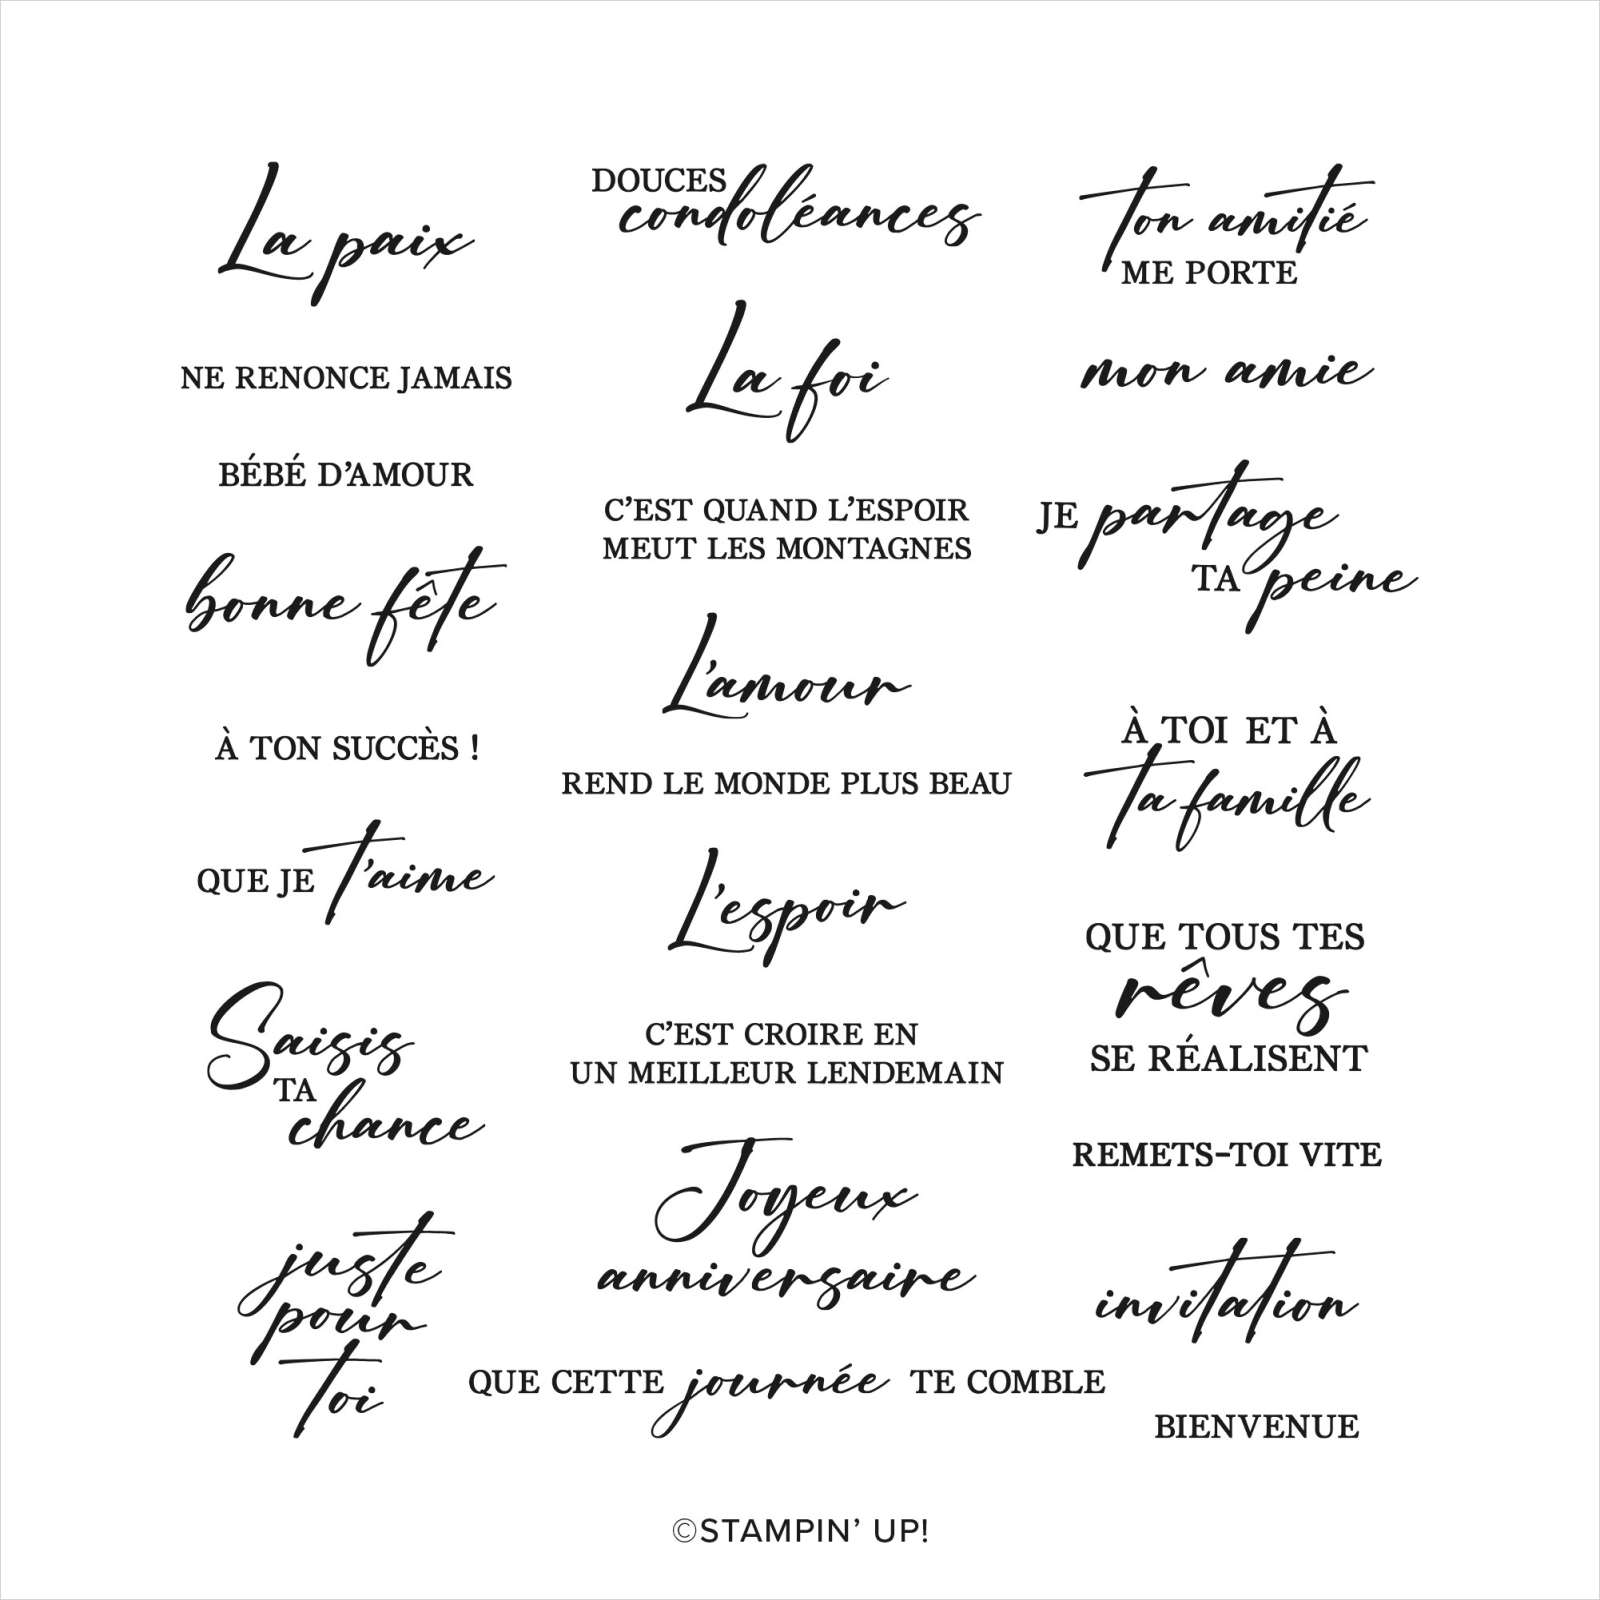 La paix
NE RENONCE JAMAIS
BÉBÉ D'AMOUR
bonne fête
À TON SUCCÈS !
QUE JE t'aime
Saisis
TA
chance
juste
pour
toi
DOUCES
condoléances
La foi
C'EST QUAND L'ESPOIR
MEUT LES MONTAGNES
L'amour
REND LE MONDE PLUS BEAU
L'espoir
C'EST CROIRE EN
UN MEILLEUR LENDEMAIN
Joyeux
anniversaire
QUE CETTE journée TE COMBLE
Ton amitié
ME PORTE
mon amie
JE partage
TA peine
À TOI ET À
ta famille
QUE TOUS TES
rêves
SE RÉALISENT
REMETS-TOI VITE
invitation
BIENVENUE
©STAMPIN' UP!